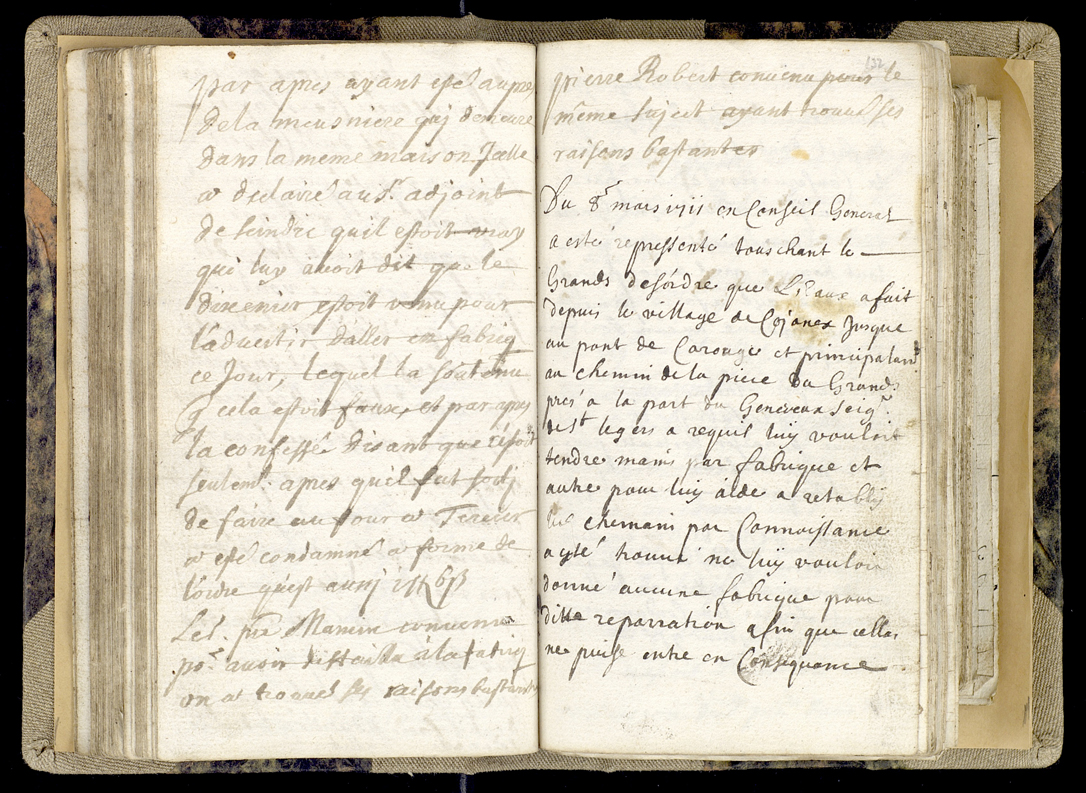 par apres ayant esté aupres
Dela meusniere quj demeure
Dans la meme maison Jcelle
a declairé au Sr. adjoint
de feindre quil estoit vray
qui luy avoit dit que le
dixenier estoit venu pour
l'advertir daller en fabriq
ce Jour, lequel la soutenu
q cela estoit faux, et par apres
la confessé disant que
seulemt. apres quil fut
de faire au four a
a esté condamné a forme de
l'ordre
Le Sr. Mamin convenu
pr. avoir deffailli à la fabriq
on a trouvé ses raisons bastantes
122
pierre Robert convenu pour le
même suject ayant trouvé ses
raisons bastantes
Du 8e mars 1711 en Conseil General
a esté represſenté touschant le
Grands desórdre que L'Eaux a fait
depuis le village de Cojonex Jusque
au pont de Carouge et principalamt
au chemin de la piece du Grands
pres a la part du Geneveux Seigr.
de St legers a requis luy vouloir
tendre mains par fabrique et
autre pour luy aide a retablis
chemain par Connoissance
a esté trouvé ne luy vouloir
donné aucune fabrique pour
ditte reparration afin que cella
ne puise entre en Consequance